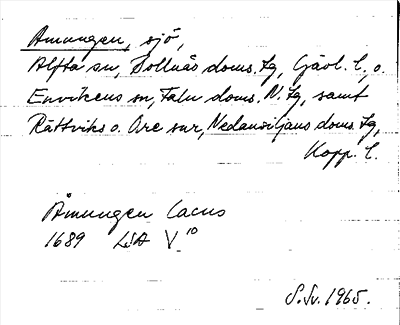 Amungen, sjö,
Alfta sn, Bollnäs doms. tg, Gävl. l, o.
Envikens sn, Falu doms. N. tg, samt
Rättviks o. Ore snr, Nedansiljans doms. tg,
Kopp. l.
Åmungen Lacus
1689 LSA V 10
S. Sv. 1965.